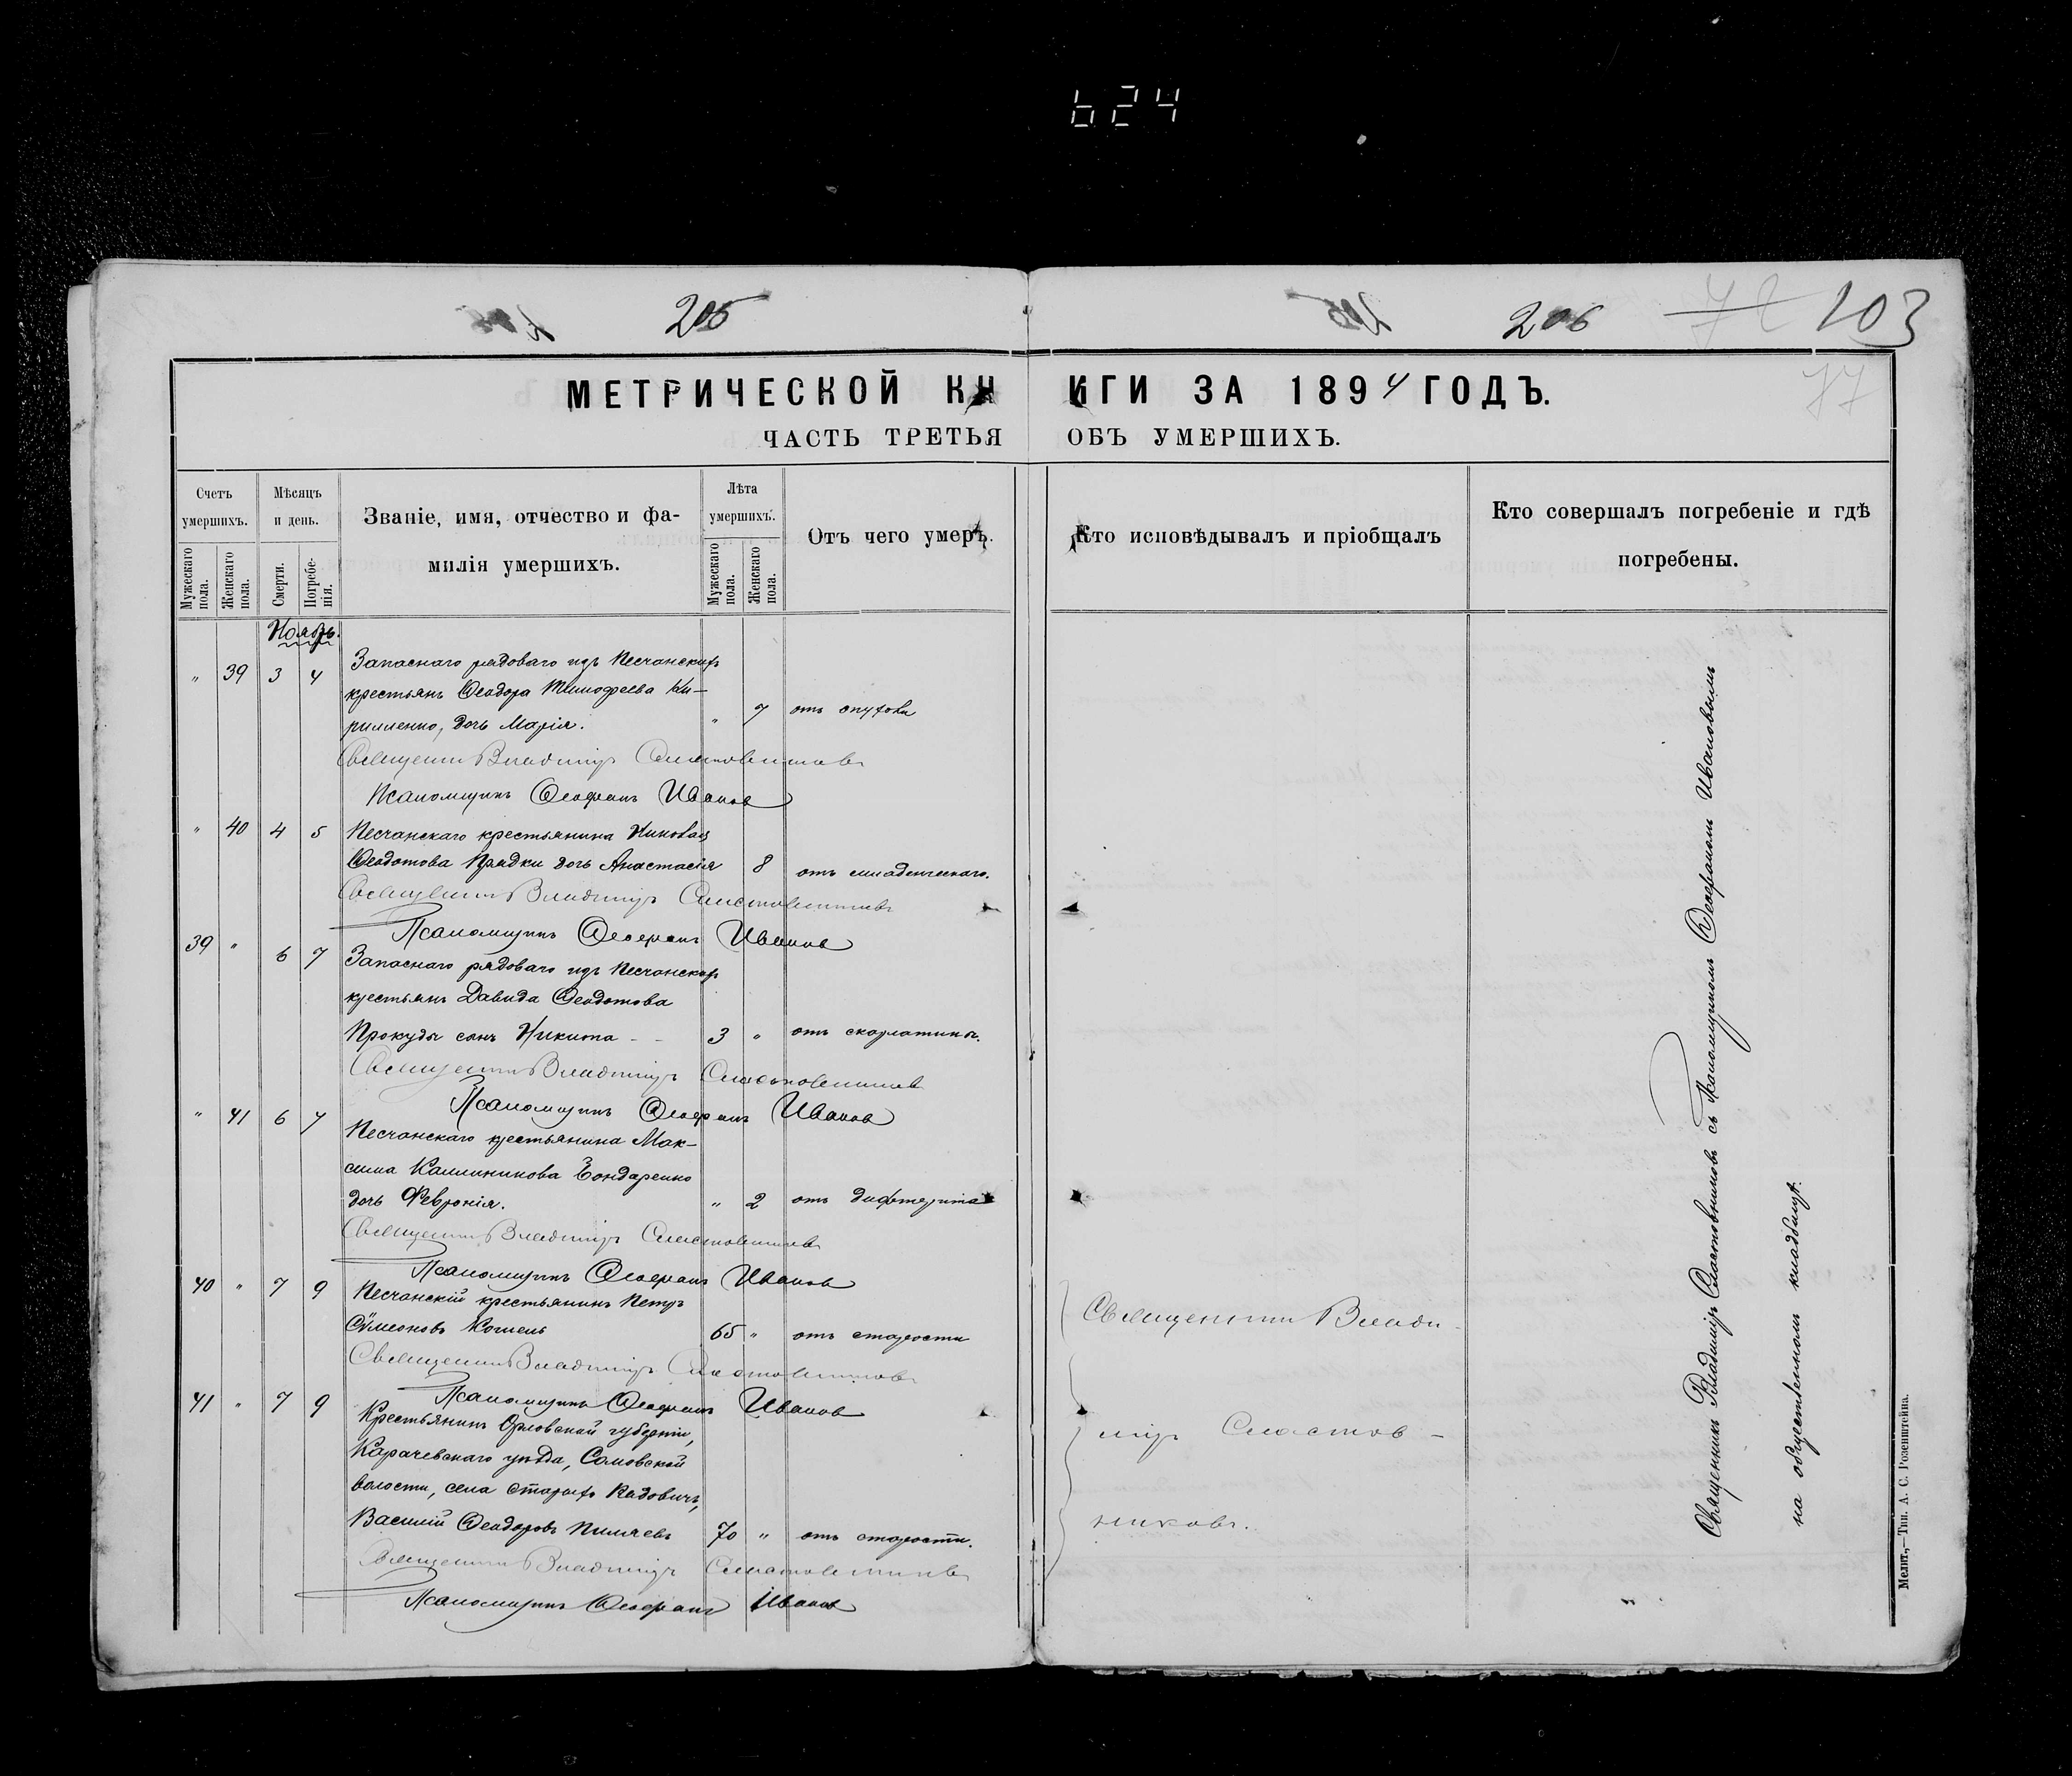 624
205
206
72
103
77
МЕТРИЧЕСКОЙ КНИГИ ЗА 1894 ГОДЪ.
ЧАСТЬ ТРЕТЬЯ ОБЪ УМЕРШИХЪ.
Счетъ умершихъ.
Мужескаго пола.
Женскаго пола.
Мѣсяцъ и день.
Смерти.
Погребенія.
Званіе, имя, отчество и фа-
милія умершихъ.
Лѣта умершихъ.
Мужескаго пола.
Женскаго пола.
Отъ чего умеръ.
Кто исповѣдывалъ и пріобщалъ
Кто совершалъ погребеніе и гдѣ
погребены.
Ноябрь.
" 39 3 4 Запаснаго рядоваго изъ Песчанскихъ
крестьянъ Ѳеодора Тимофеева Ки-
рилленко, дочь Марія. " 7 отъ опухоли
Священникъ Владиміръ Сластовниковъ
Псаломщикъ Ѳеофанъ Ивановъ
" 40 4 5 Песчанскаго крестьянина Николая
Ѳеодотова Прядки дочь Анастасія 8 отъ младенческаго.
Священникъ Владиміръ Сластовниковъ
Псаломщикъ Ѳеофанъ Ивановъ
39 " 6 7 Запаснаго рядоваго изъ Песчанскихъ
крестьянъ Давида Ѳеодотова
Прокуды сынъ Никита - - 3 " отъ скарлатины.
Священникъ Владиміръ Сластовниковъ
Псаломщикъ Ѳеофанъ Ивановъ
" 41 6 7 Песчанскаго крестьянина Мак-
сима Каллиникова Бондаренко
дочь Февронія. " 2 отъ дифтерита
Священникъ Владиміръ Сластовниковъ
Псаломщикъ Ѳеофанъ Ивановъ
40 " 7 9 Песчанскій крестьянинъ Петръ
Сѵмеоновъ Кошель 65 " отъ старости
Священникъ Владиміръ Сластовниковъ
Псаломщикъ Ѳеофанъ Ивановъ
41 " 7 9 Крестьянинъ Орловской губерніи,
Карачевскаго уѣзда, Сомовской
волости, села Старыхъ Радовичъ,
Василій Ѳеодоровъ 70 " отъ старости.
Священникъ Владиміръ Сластовниковъ
Псаломщикъ Ѳеофанъ Ивановъ
Священникъ Влади-
міръ Сластов-
никовъ.
Священникъ Владиміръ Сластовниковъ съ Псаломщикомъ Ѳеофаномъ Ивановымъ
на общественномъ кладбищѣ.
Мелит.,—Тип. А. С. Розенштейна.